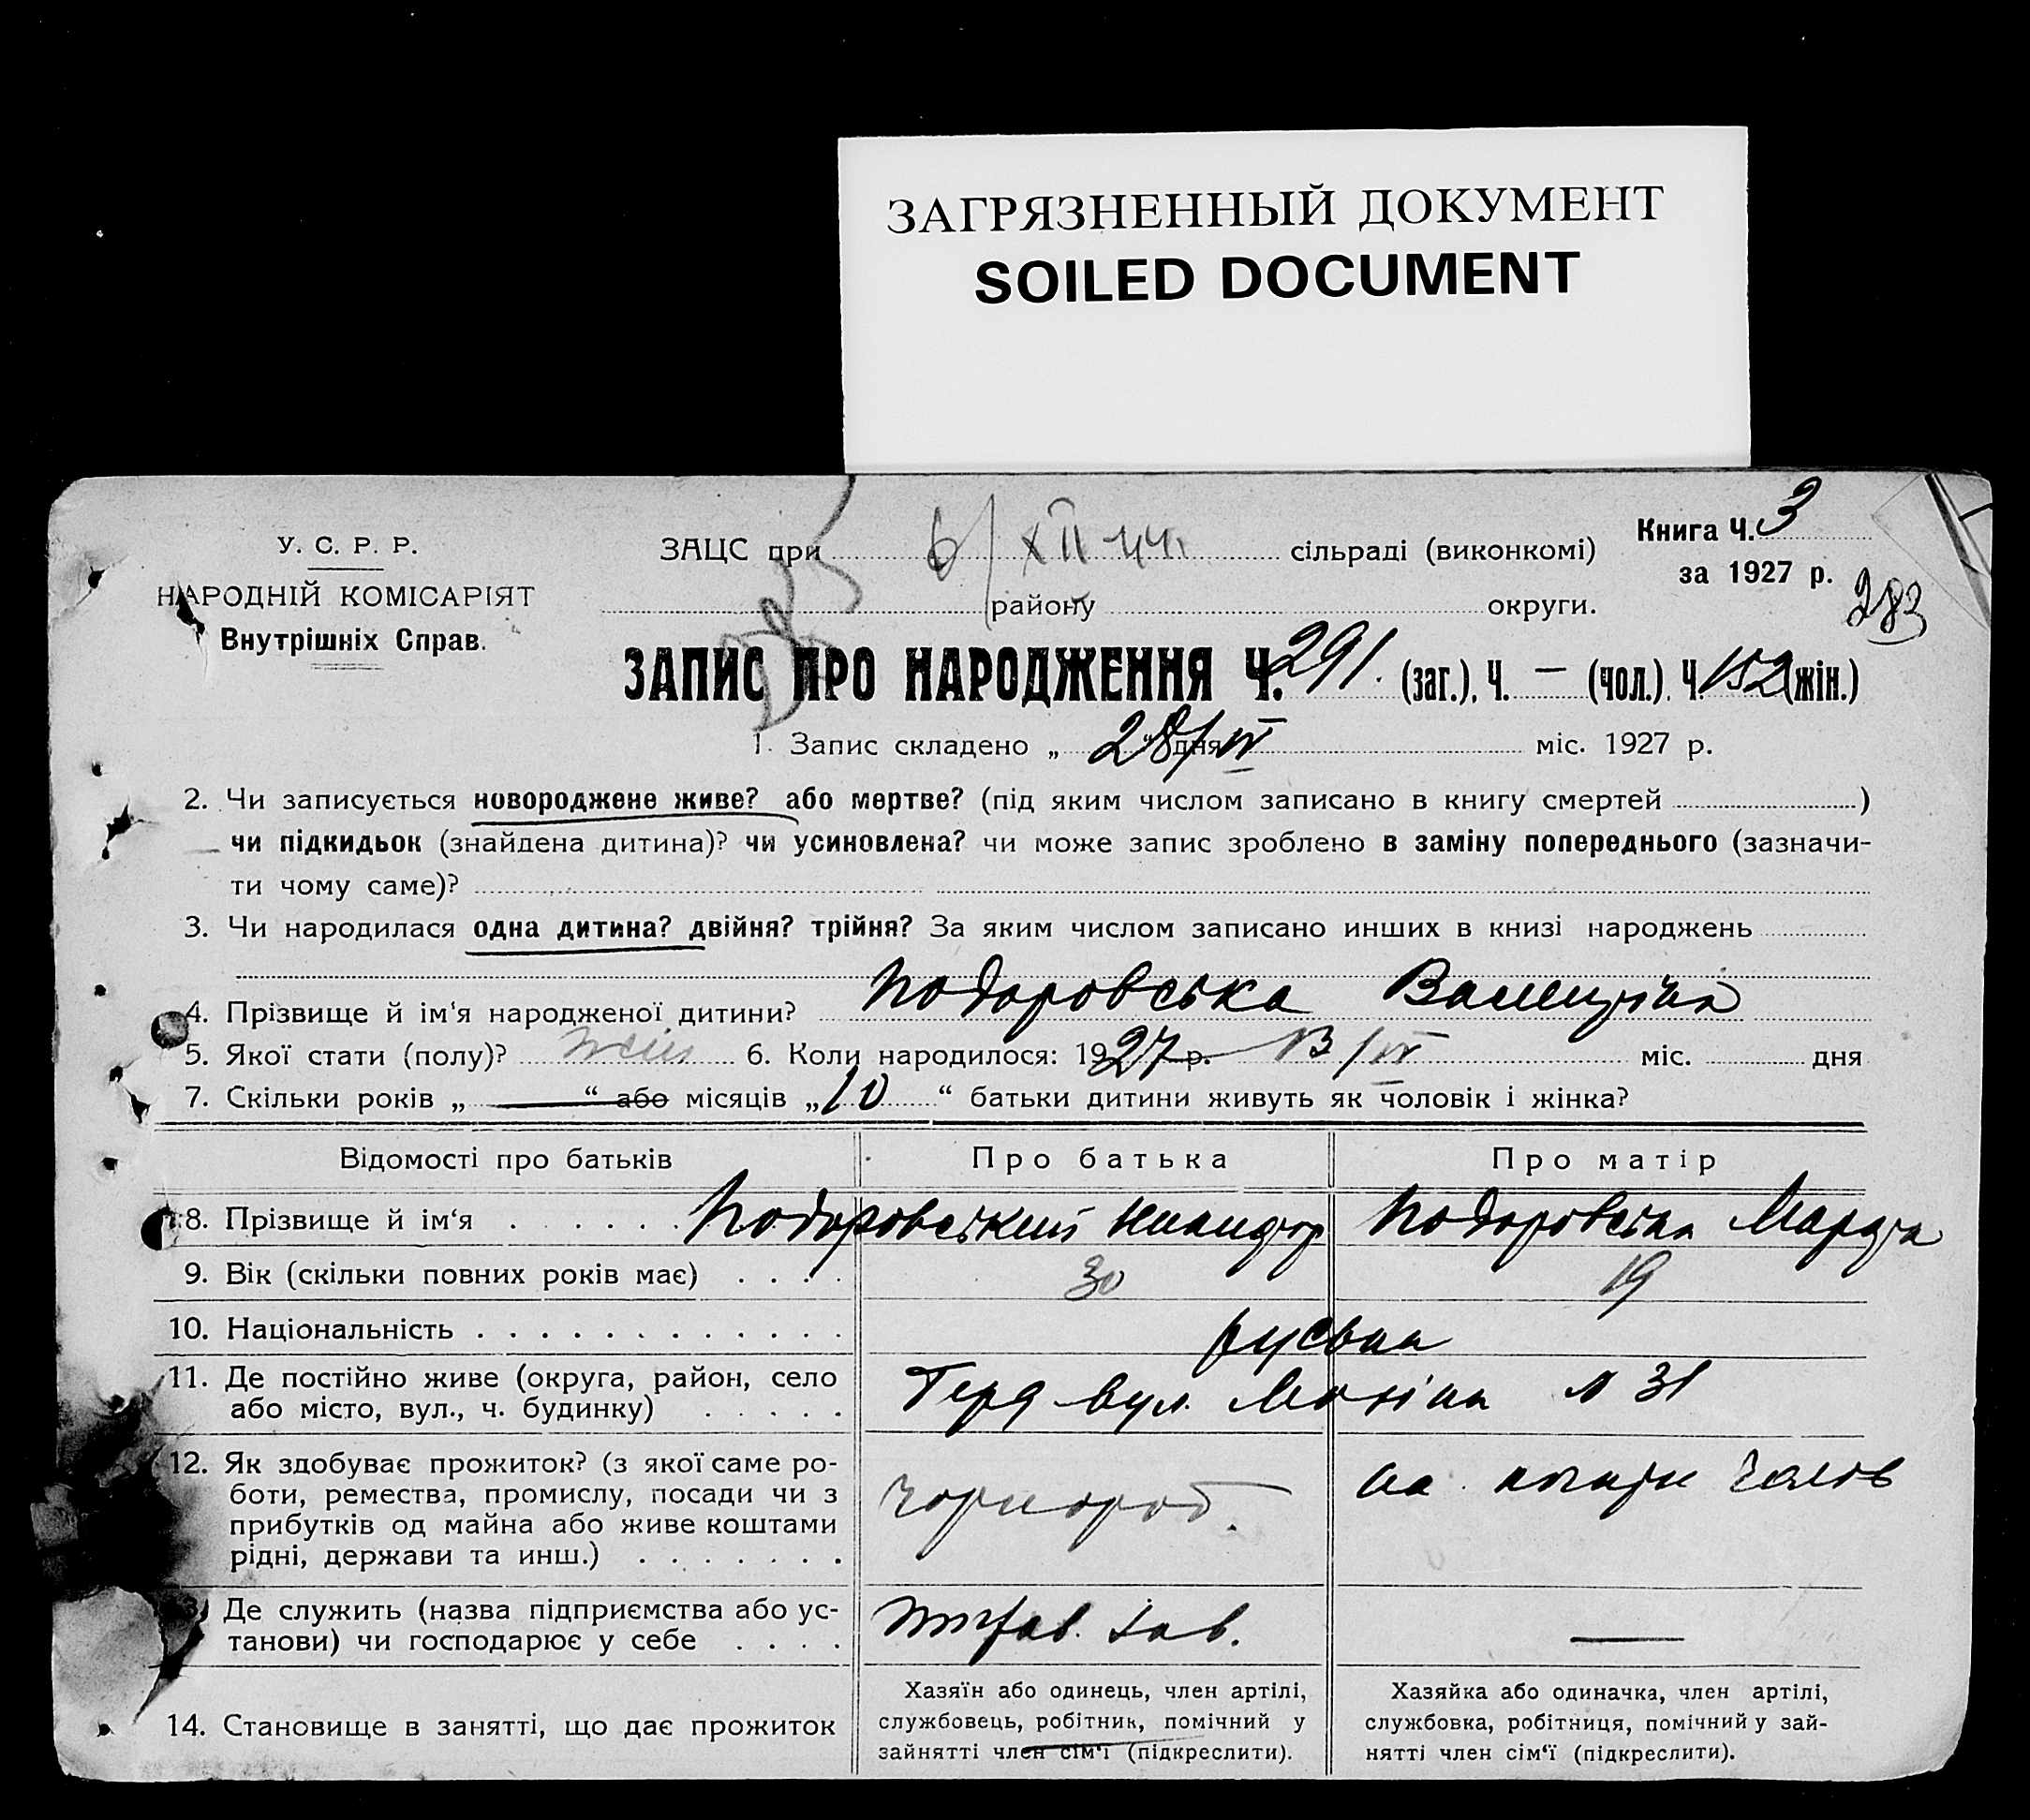 ЗАГРЯЗНЕННЫЙ ДОКУМЕНТ
SOILED DOCUMENT
У. С. Р. Р.
НАРОДНІЙ КОМІСАРІЯТ
Внутрішніх Справ.
ЗАЦС при 6/XII сільраді (виконкомі)
району округи.
Книга Ч. 3
за 1927 р.
283
ЗАПИС ПРО НАРОДЖЕННЯ Ч. 291. (заг.), Ч. — (чол.). Ч. 152 (жін.)
1. Запис складено „ 28/IV “ дня міс. 1927 р.
2. Чи записується новороджене живе? або мертве? (під яким числом записано в книгу смертей )
чи підкидьок (знайдена дитина)? чи усиновлена? чи може запис зроблено в заміну попереднього (зазначи-
ти чому саме)?
3. Чи народилася одна дитина? двійня? трійня? За яким числом записано инших в книзі народжень
4. Прізвище й ім‘я народженої дитини? Подоровська Валентина
5. Якої стати (полу)? жін 6. Коли народилося: 1927 р. 13/IV міс. дня
7. Скільки років „ — “ або місяців „ 10 “ батьки дитини живуть як чоловік і жінка?
Відомості про батьків Про батька Про матір
8. Прізвище й ім‘я Подоровський Никифор Подоровська Марфа
9. Вік (скільки повних років має) 30 19
10. Національність
11. Де постійно живе (округа, район, село
або місто, вул., ч. будинку) вул. № 31
12. Як здобуває прожиток? (з якої саме ро-
боти, ремества, промислу, посади чи з
прибутків од майна або живе коштами
рідні, держави та инш.) чорнороб.
13. Де служить (назва підприємства або ус-
танови) чи господарює у себе зав. —
14. Становище в занятті, що дає прожиток
Хазяїн або одинець, член артілі,
службовець, робітник, помічний у
зайнятті член сім‘ї (підкреслити).
Хазяйка або одиначка, член артілі,
службовка, робітниця, помічний у зай-
нятті член сім‘ї (підкреслити).